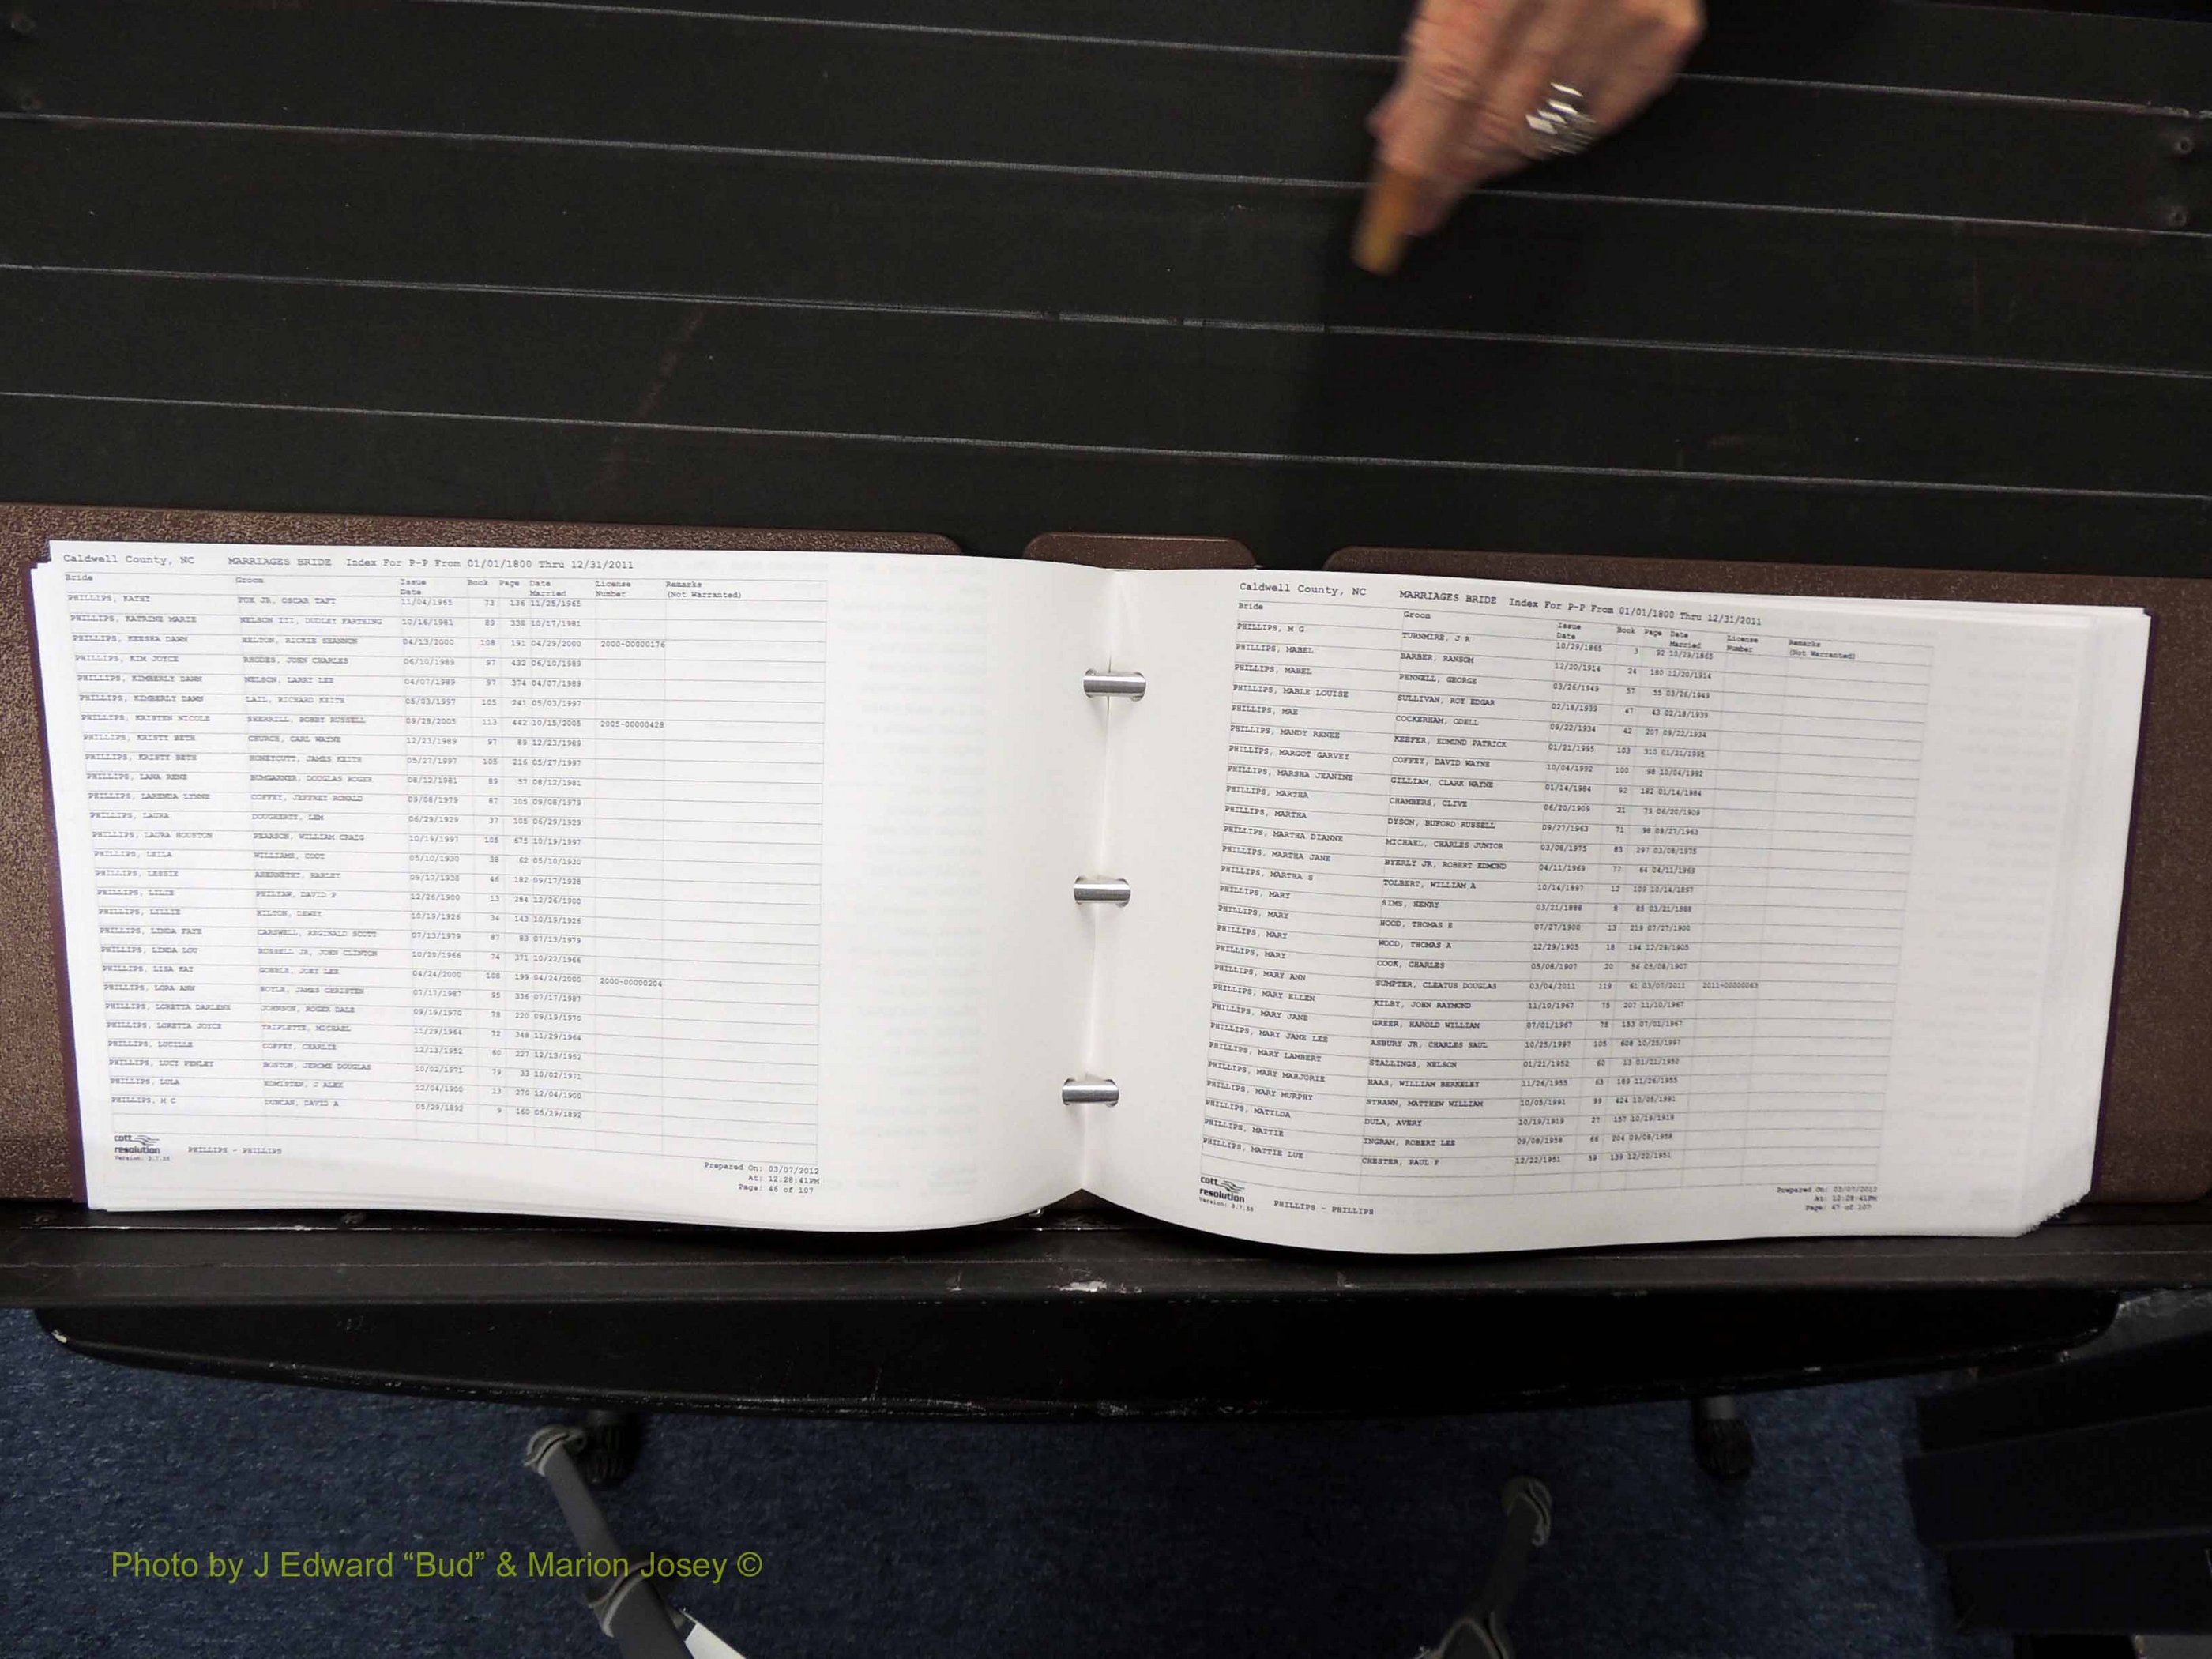 Caldwell County, NC MARRIAGES BRIDE Index For P-P From 01/01/1800 Thru 12/31/2011
Bride Groom Issue Date Book Page Date Married License Number Remarks (Not Warranted)
PHILLIPS, KATHY FOX JR, OSCAR TAFT 11/04/1965 73 136 11/25/1965
PHILLIPS, KATRINE MARIE NELSON III, DUDLEY FARTHING 10/16/1981 89 338 10/17/1981
PHILLIPS, KEESHA DAWN HELTON, RICKIE SHANNON 04/13/2000 108 191 04/29/2000 2000-00000176
PHILLIPS, KIM JOYCE RHODES, JOHN CHARLES 06/10/1989 97 432 06/10/1989
PHILLIPS, KIMBERLY DAWN NELSON, LARRY LEE 04/07/1989 97 374 04/07/1989
PHILLIPS, KIMBERLY DAWN LAIL, RICHARD KEITH 05/03/1997 105 241 05/03/1997
PHILLIPS, KRISTEN NICOLE SHERRILL, BOBBY RUSSELL 09/28/2005 113 442 10/15/2005 2005-00000428
PHILLIPS, KRISTY BETH CHURCH, CARL WAYNE 12/23/1989 97 89 12/23/1989
PHILLIPS, KRISTY BETH HONEYCUTT, JAMES KEITH 05/27/1997 105 216 05/27/1997
PHILLIPS, LANA RENE BUMGARNER, DOUGLAS ROGER 08/12/1981 89 57 08/12/1981
PHILLIPS, LARENDA LYNNE COFFEY, JEFFREY RONALD 09/08/1979 87 105 09/08/1979
PHILLIPS, LAURA DOUGHERTY, LEM 06/29/1929 37 105 06/29/1929
PHILLIPS, LAURA HOUSTON PEARSON, WILLIAM CRAIG 10/19/1997 105 675 10/19/1997
PHILLIPS, LEILA WILLIAMS, COOT 05/10/1930 38 62 05/10/1930
PHILLIPS, LESSIE ABERNETHY, HARLEY 09/17/1938 46 182 09/17/1938
PHILLIPS, LILIE PHILYAW, DAVID P 12/26/1900 13 284 12/26/1900
PHILLIPS, LILLIE HILTON, DEWEY 10/19/1926 34 143 10/19/1926
PHILLIPS, LINDA FAYE CARSWELL, REGINALD SCOTT 07/13/1979 87 83 07/13/1979
PHILLIPS, LINDA LOU RUSSELL JR, JOHN CLINTON 10/20/1966 74 371 10/22/1966
PHILLIPS, LISA KAY GOBBLE, JOEY LEE 04/24/2000 108 199 04/24/2000 2000-00000204
PHILLIPS, LORA ANN BOYLE, JAMES CHRISTEN 07/17/1987 95 336 07/17/1987
PHILLIPS, LORETTA DARLENE JOHNSON, ROGER DALE 09/19/1970 78 220 09/19/1970
PHILLIPS, LORETTA JOYCE TRIPLETTE, MICHAEL 11/29/1964 72 348 11/29/1964
PHILLIPS, LUCILLE COFFEY, CHARLIE 12/13/1952 60 227 12/13/1952
PHILLIPS, LUCY PENLEY BOSTON, JEROME DOUGLAS 10/02/1971 79 33 10/02/1971
PHILLIPS, LULA EDMISTEN, J ALEX 12/04/1900 13 270 12/04/1900
PHILLIPS, M C DUNCAN, DAVID A 05/29/1892 9 160 05/29/1892
cott resolution
Version: 3.7.55
PHILLIPS - PHILLIPS
Prepared On: 03/07/2012
At: 12:28:41PM
Page: 46 of 107
Caldwell County, NC MARRIAGES BRIDE Index For P-P From 01/01/1800 Thru 12/31/2011
Bride Groom Issue Date Book Page Date Married License Number Remarks (Not Warranted)
PHILLIPS, M G TURNMIRE, J R 10/29/1865 3 92 10/29/1865
PHILLIPS, MABEL BARBER, RANSOM 12/20/1914 24 180 12/20/1914
PHILLIPS, MABEL PENNELL, GEORGE 03/26/1949 57 55 03/26/1949
PHILLIPS, MABLE LOUISE SULLIVAN, ROY EDGAR 02/18/1939 47 43 02/18/1939
PHILLIPS, MAE COCKERHAM, ODELL 09/22/1934 42 207 09/22/1934
PHILLIPS, MANDY RENEE KEEFER, EDMUND PATRICK 01/21/1995 103 310 01/21/1995
PHILLIPS, MARGOT GARVEY COFFEY, DAVID WAYNE 10/04/1992 100 98 10/04/1992
PHILLIPS, MARSHA JEANINE GILLIAM, CLARK WAYNE 01/14/1984 92 182 01/14/1984
PHILLIPS, MARTHA CHAMBERS, CLIVE 06/20/1909 21 79 06/20/1909
PHILLIPS, MARTHA DYSON, BUFORD RUSSELL 09/27/1963 71 98 09/27/1963
PHILLIPS, MARTHA DIANNE MICHAEL, CHARLES JUNIOR 03/08/1975 83 297 03/08/1975
PHILLIPS, MARTHA JANE BYERLY JR, ROBERT EDMOND 04/11/1969 77 64 04/11/1969
PHILLIPS, MARTHA S TOLBERT, WILLIAM A 10/14/1897 12 109 10/14/1897
PHILLIPS, MARY SIMS, HENRY 03/21/1888 8 85 03/21/1888
PHILLIPS, MARY HOOD, THOMAS E 07/27/1900 13 219 07/27/1900
PHILLIPS, MARY WOOD, THOMAS A 12/29/1905 18 194 12/29/1905
PHILLIPS, MARY COOK, CHARLES 05/08/1907 20 56 05/08/1907
PHILLIPS, MARY ANN SUMPTER, CLEATUS DOUGLAS 03/04/2011 119 61 03/07/2011 2011-00000063
PHILLIPS, MARY ELLEN KILBY, JOHN RAYMOND 11/10/1967 75 207 11/10/1967
PHILLIPS, MARY JANE GREER, HAROLD WILLIAM 07/01/1967 75 153 07/01/1967
PHILLIPS, MARY JANE LEE ASBURY JR, CHARLES SAUL 10/25/1997 105 608 10/25/1997
PHILLIPS, MARY LAMBERT STALLINGS, NELSON 01/21/1952 60 13 01/21/1952
PHILLIPS, MARY MARJORIE HAAS, WILLIAM BERKELEY 11/26/1955 63 189 11/26/1955
PHILLIPS, MARY MURPHY STRAWN, MATTHEW WILLIAM 10/05/1991 99 424 10/05/1991
PHILLIPS, MATILDA DULA, AVERY 10/19/1919 27 157 10/19/1919
PHILLIPS, MATTIE INGRAM, ROBERT LEE 09/08/1958 66 204 09/08/1958
PHILLIPS, MATTIE LUE CHESTER, PAUL F 12/22/1951 59 139 12/22/1951
cott resolution
Version: 3.7.55
PHILLIPS - PHILLIPS
Prepared On: 03/07/2012
At: 12:28:41PM
Page: 47 of 107
Photo by J Edward “Bud” & Marion Josey ©